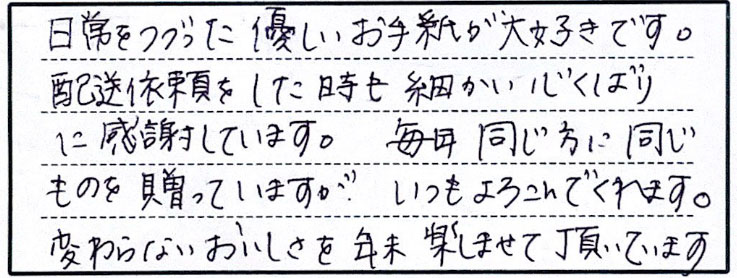 日常をつづった優しいお手紙が大好きです。
配送依頼をした時も細かい心くばり
に感謝しています。 毎年同じ方に同じ
ものを贈っていますが いつもよろこんでくれます。
変わらないおいしさを年末楽しませて頂いています